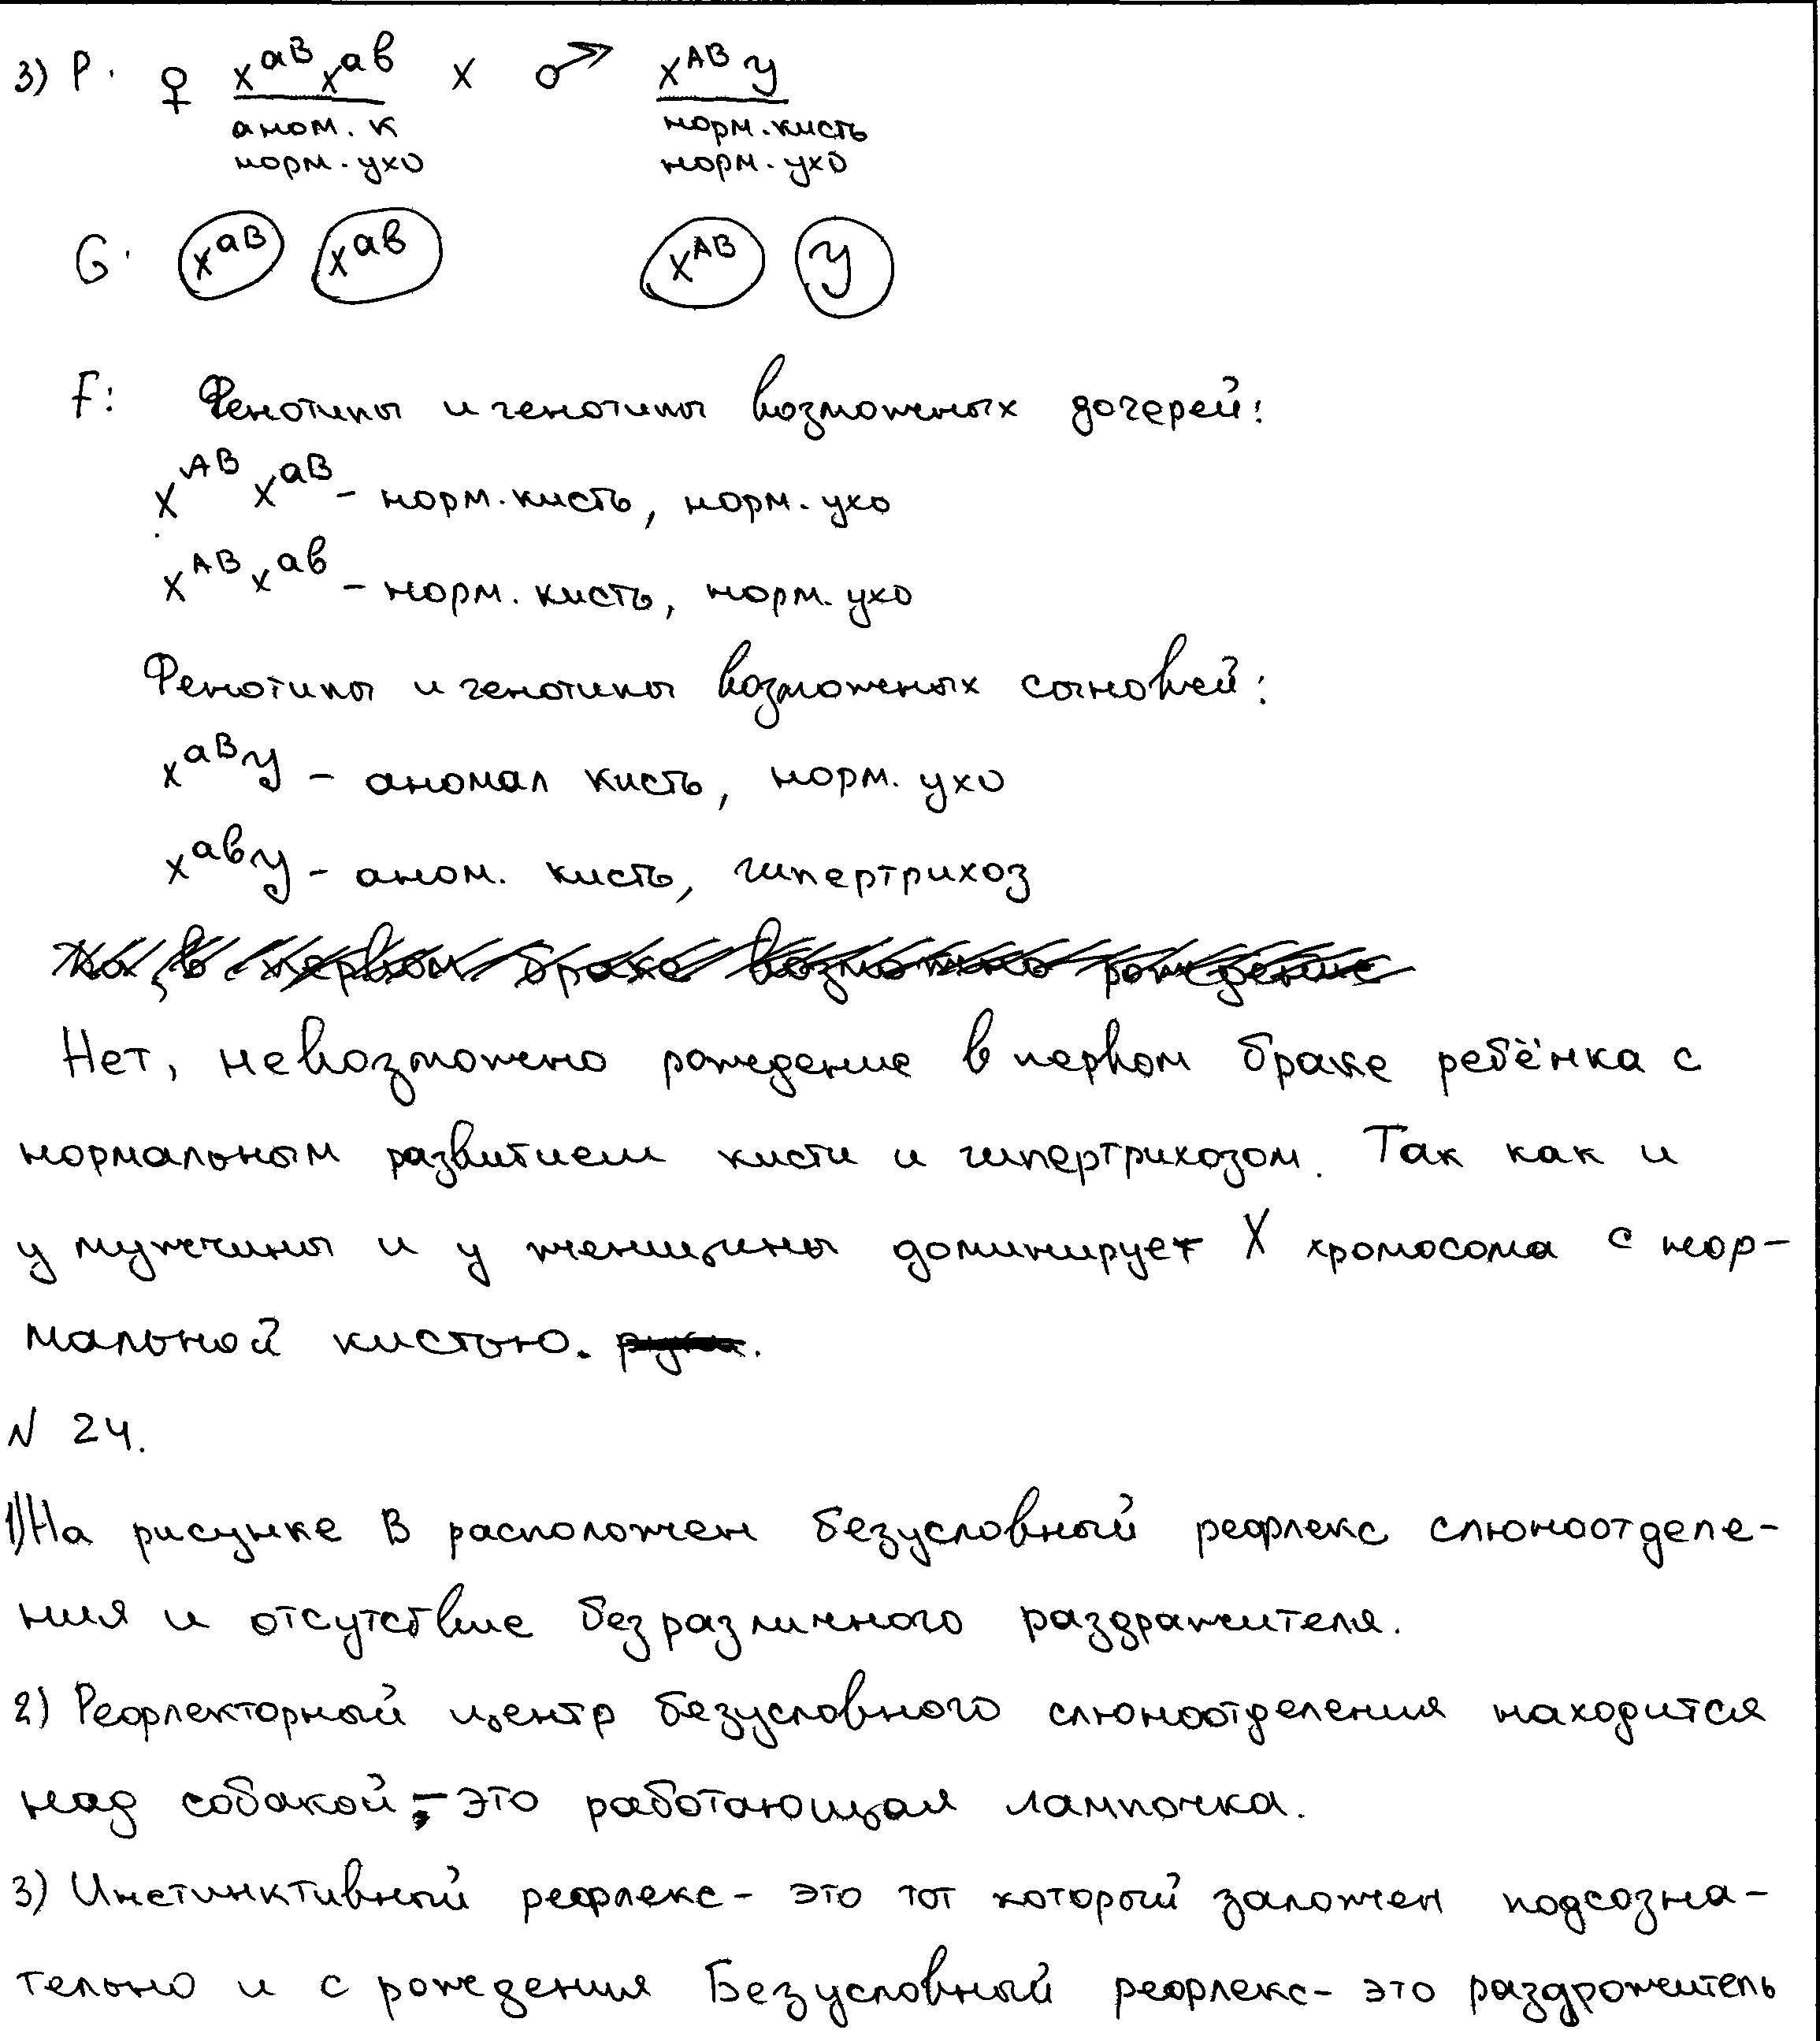 3) P. ♀ X^aB X^ab x ♂ X^AB y
аном. к норм. кисть
норм. ухо норм. ухо
G. X^aB X^ab X^AB y
F: Фенотипы и генотипы возможных дочерей:
X^AB X^aB - норм. кисть, норм. ухо
X^AB X^ab - норм. кисть, норм. ухо
Фенотипы и генотипы возможных сыновей:
X^aB y - аномал кисть, норм. ухо
X^ab y - аном. кисть, гипертрихоз
Нет, невозможно рождение в первом браке ребёнка с
нормальным развитием кисти и гипертрихозом. Так как и
у мужчины и у женщины доминирует X хромосома с нор-
мальной кистью.
N 24.
1) На рисунке В расположен безусловный рефлекс слюноотделе-
ния и отсутствие безразличного раздражителя.
2) Рефлекторный центр безусловного слюноотделения находится
над собакой, - это работающая лампочка.
3) Инстинктивный рефлекс - это тот который заложен подсозна-
тельно и с рождения Безусловный рефлекс - это раздрожитель